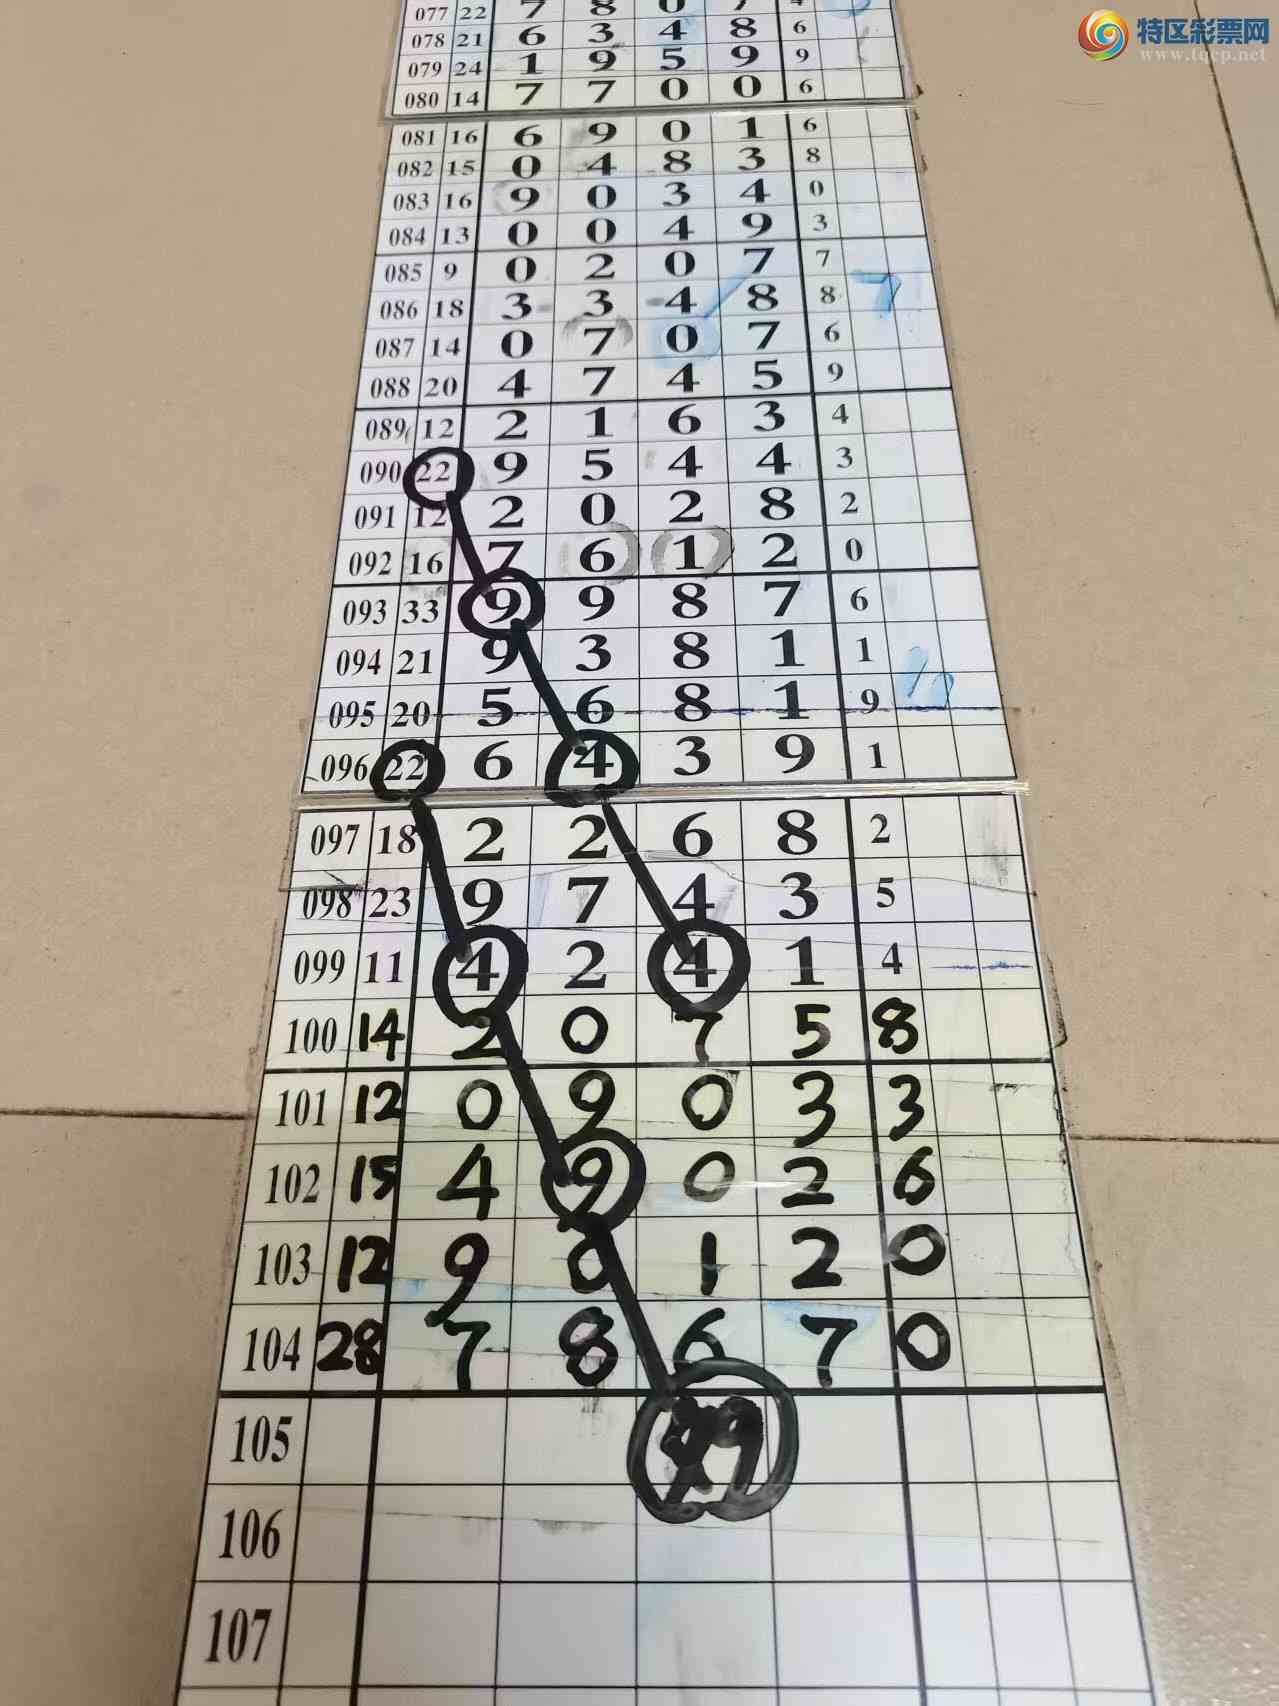 特区彩票网
www.tqcp.net
077 22 7 8 0 7 4
078 21 6 3 4 8 6
079 24 1 9 5 9 9
080 14 7 7 0 0 6
081 16 6 9 0 1 6
082 15 0 4 8 3 8
083 16 9 0 3 4 0
084 13 0 0 4 9 3
085 9 0 2 0 7 7 7
086 18 3 3 4 8 8
087 14 0 7 0 7 6
088 20 4 7 4 5 9
089 12 2 1 6 3 4
090 22 9 5 4 4 3
091 12 2 0 2 8 2
092 16 7 6 1 2 0
093 33 9 9 8 7 6
094 21 9 3 8 1 1
095 20 5 6 8 1 9
096 22 6 4 3 9 1
097 18 2 2 6 8 2
098 23 9 7 4 3 5
099 11 4 2 4 1 4
100 14 2 0 7 5 8
101 12 0 9 0 3 3
102 15 4 9 0 2 6
103 12 9 0 1 2 0
104 28 7 8 6 7 0
105
106
107